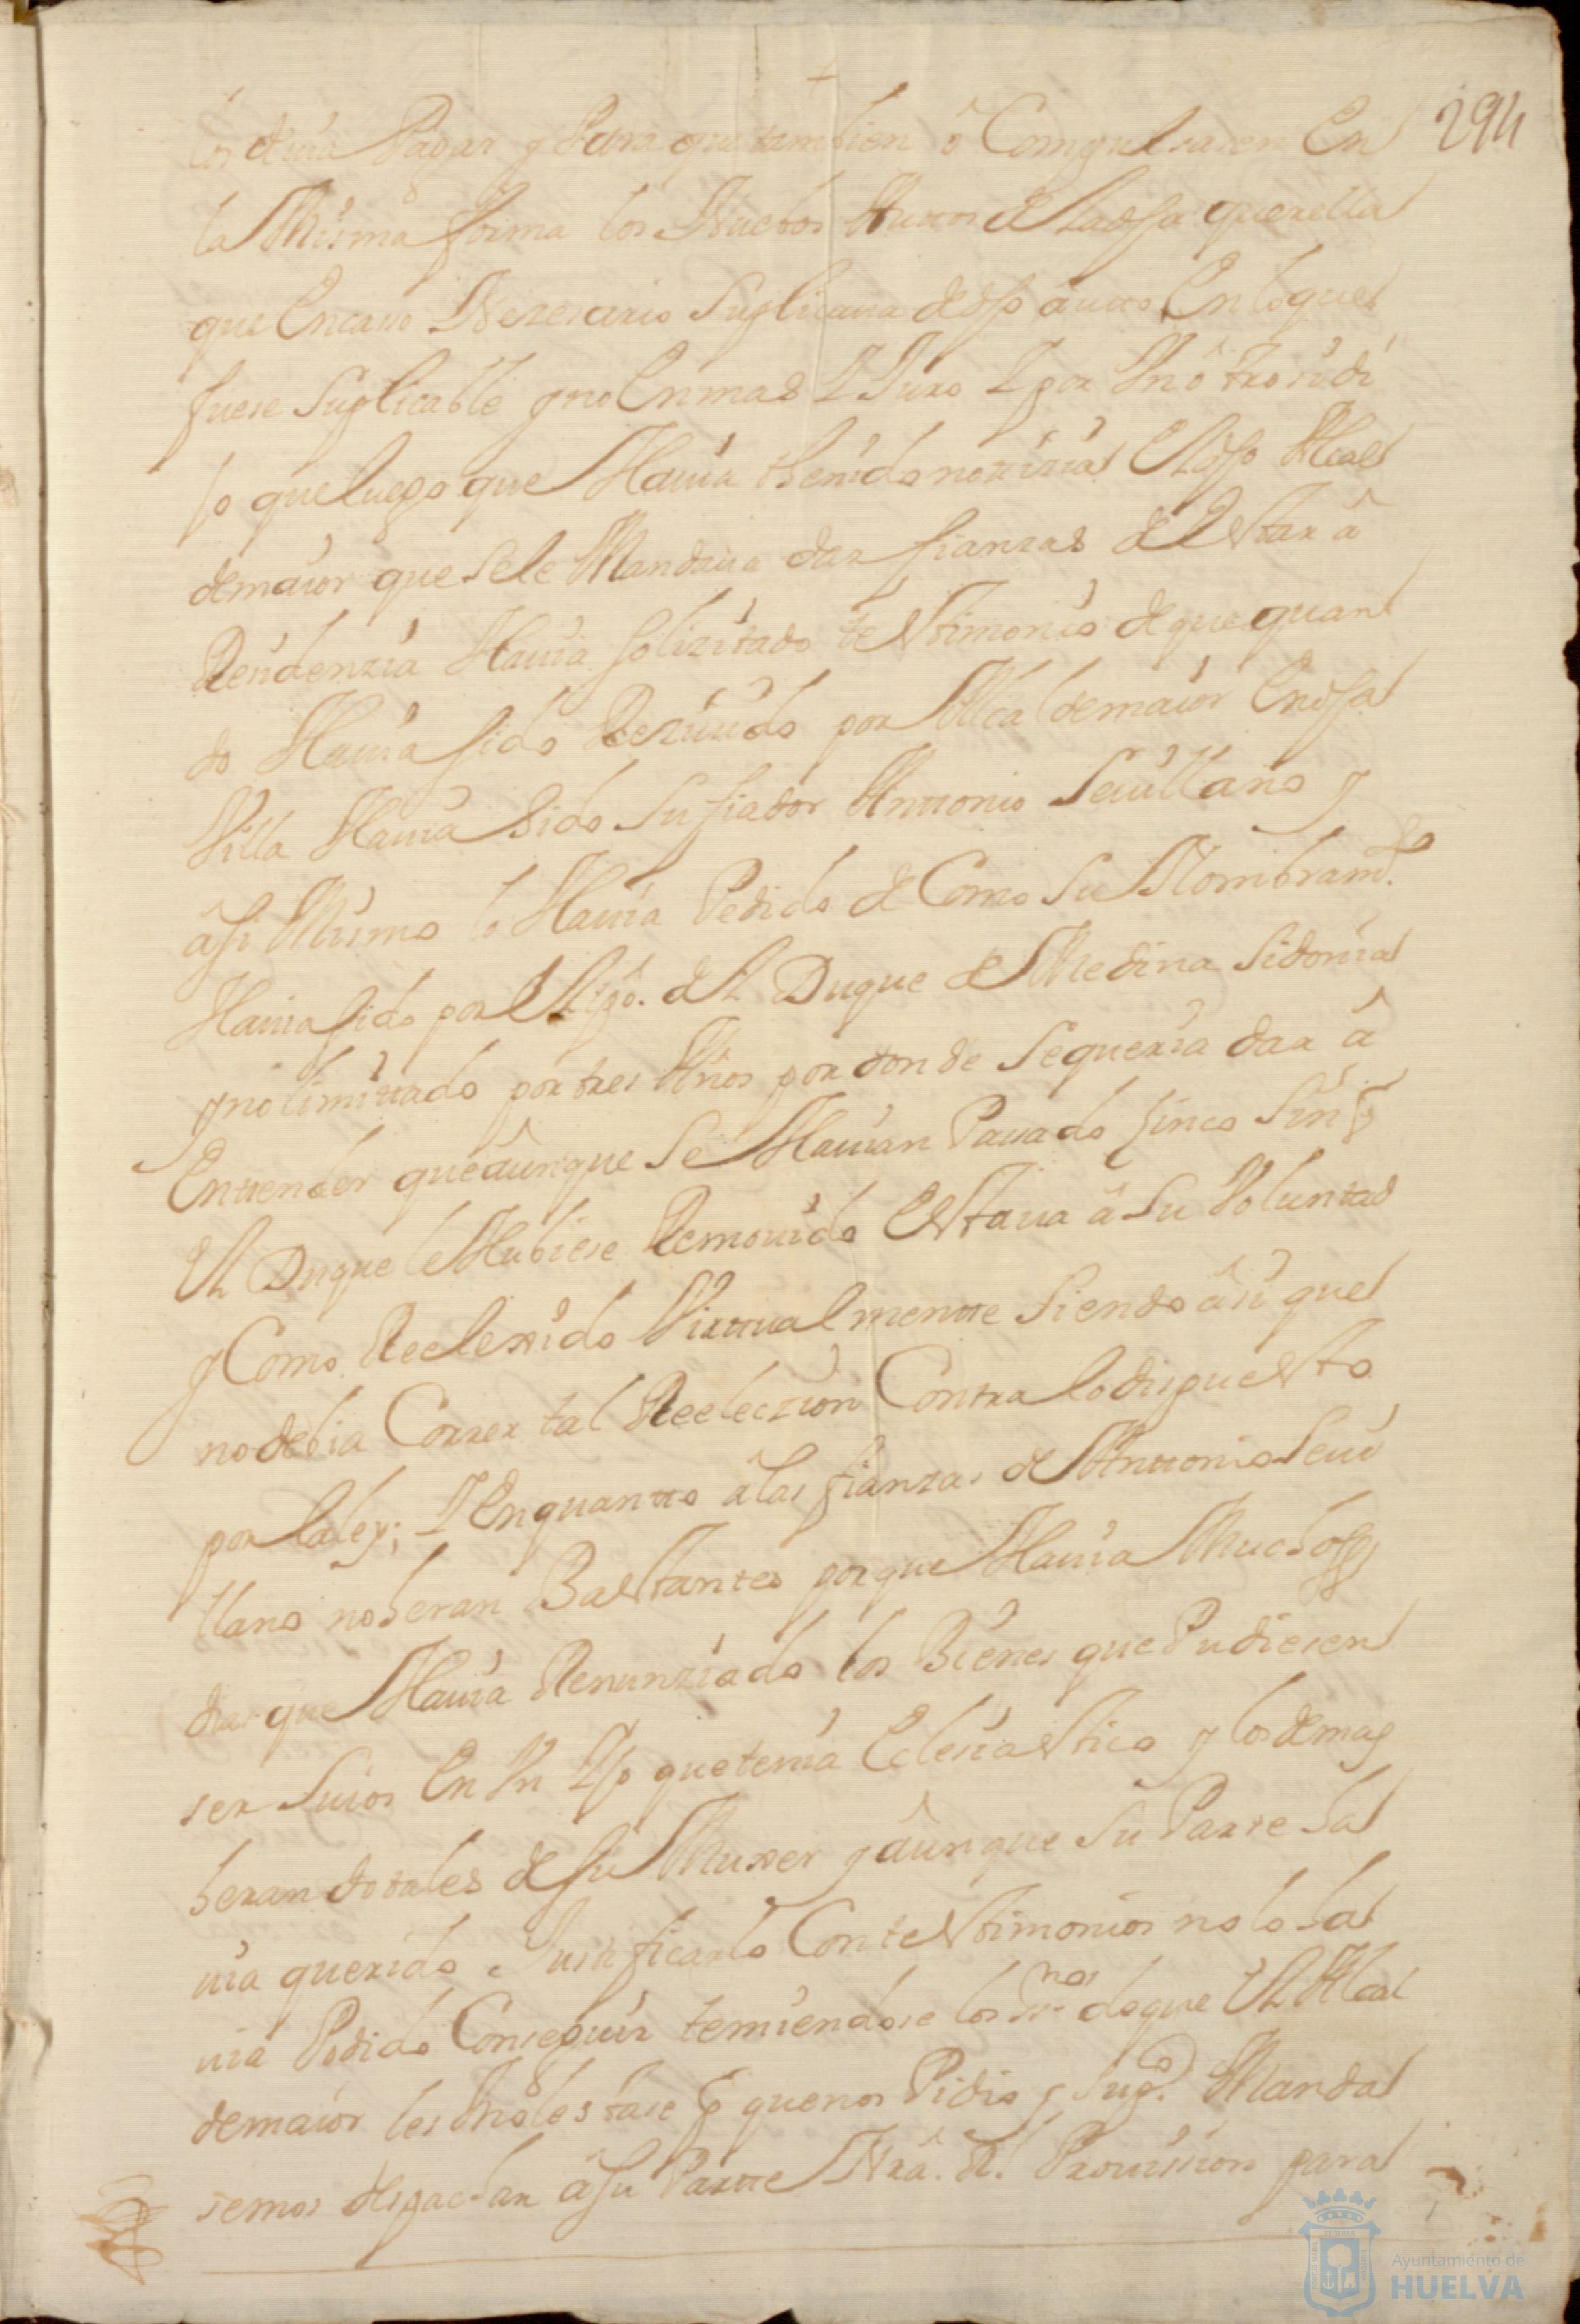 294
los deuia Pagar y Para que tambien ô Compulsasen En
la Misma forma los Nuebos Autos de la dha querella
que En caso Nezesario Suplicaua de dho auto En lo que
fuese Suplicable y no En mas Y Juro Y por Un ôtrosi di
jo que luego que Hauia thenido notizia El dho Alcal
de maior que se le Mandaua dar fianzas de Estar â
Residenzia Hauia solizitado testimonio de que quan
do Hauia sido Reziuido por Alcalde maior En dha
Villa Hauia sido su fiador Anttonio Seuillano y
âsi Mismo lo Hauia Pedido de Como su Nombramto.
Hauia sido por El dho. del Duque de Medina Sidonia
y no limittado por tres Años por donde se queria dar â
Enttender que âunque se Hauian Pasado sinco sin q
El Duque le Hubiese Remouido Estaua â su Voluntad
y Como Reelexido Virttualmentte siendo âsi que
no debia Correr tal Reeleczion Contra lo dispuesto
por la ley; Y En quantto â las fianzas de Anttonio Seui
llano no heran Bastantes porque Hauia Muchos
dias que Hauia Renunziado los Bienes que Pudiesen
ser suios En Un Yjo que tenia Eclesiastico y los demas
heran dotales de su Muxer y âunque su Parte ha
uia querido Justificarlo Con testimonios no lo ha
uia Podido Conseguir temiendose los ssnos de que El Alcal
de maior les Molestase q que nos Pidio y supco. Manda
semos despachar â su Partte Nrâ. Rl. Prouision para
Ayuntamiento de
HUELVA